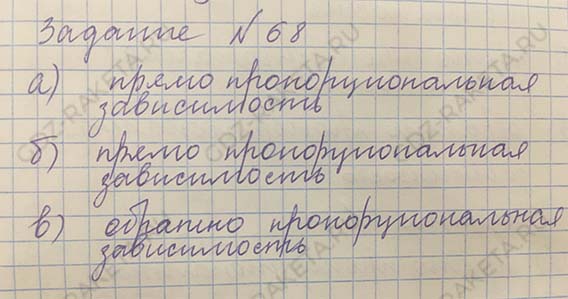 Задание №68
а) прямо пропорциональная
зависимость
б) прямо пропорциональная
зависимость
в) обратно пропорциональная
зависимость
GDZ-RAKETA.RU